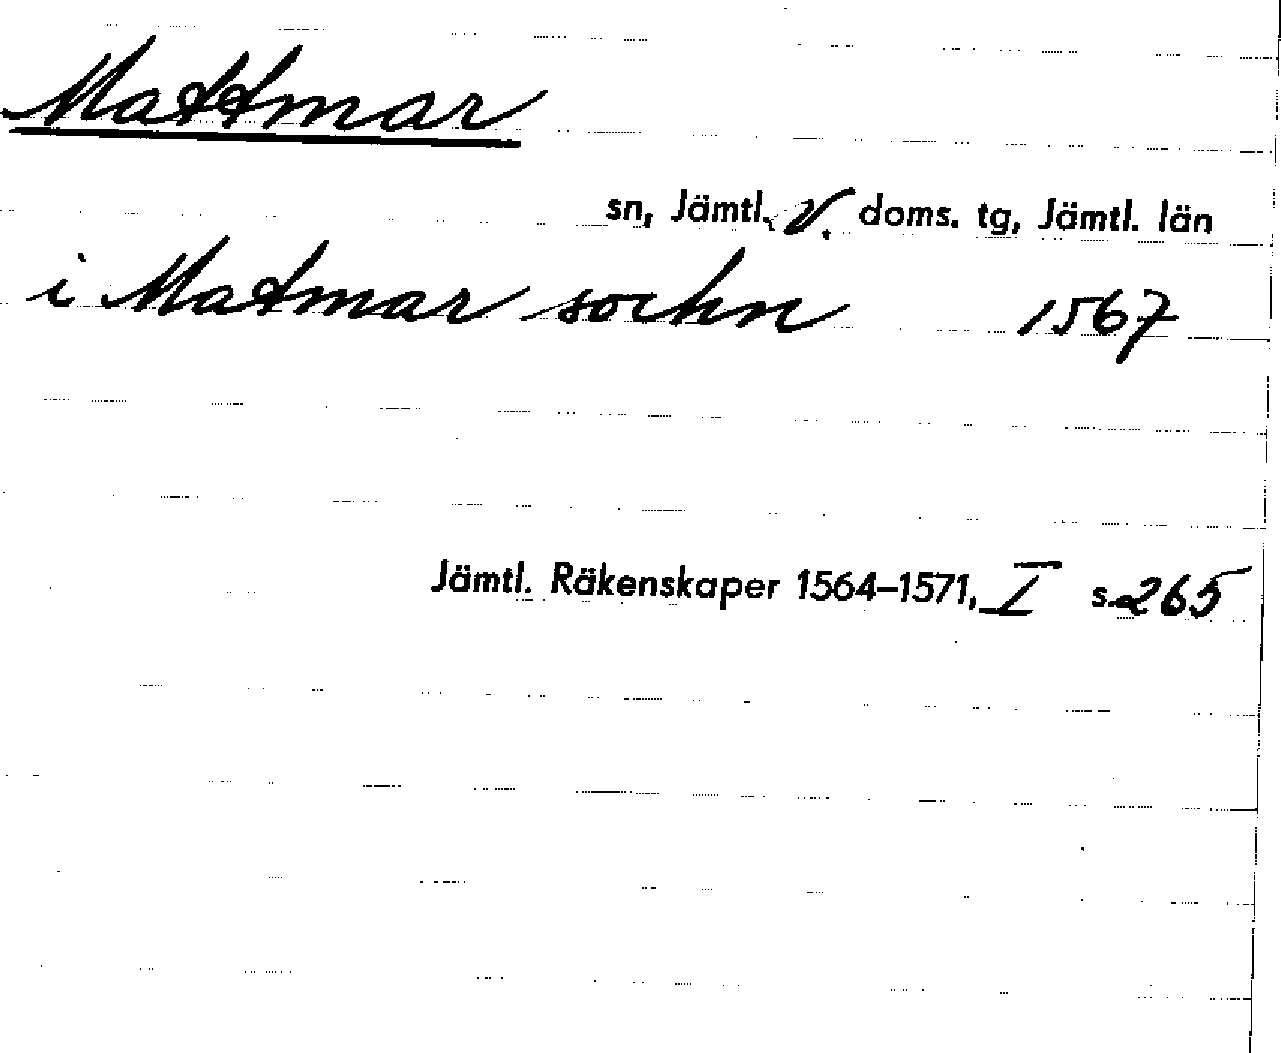 Mattmar
sn, Jämtl. V. doms. tg, Jämtl. län
i Matmar sockn 1567
Jämtl. Räkenskaper 1564–1571, I s. 265